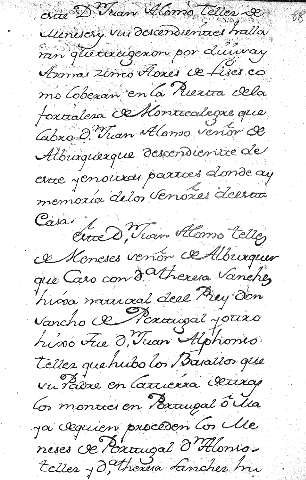 este D.ⁿ Juan Alonso tellez de
Meneses y sus descendientes halla
ran que tuvieron por divisa y
Armas zinco flores de Lises co
mo lo beran en la Puerta de la
fortaleza de Montealegre que
labro D.ⁿ Juan Alonso señor de
Alburquerque descendiente de
este y en otras partes donde ay
memoria de los Señores de esta
Casa.
este D.ⁿ Juan Alonso tellez
de Meneses señor de Alburquer
que Caso con D.ª theresa Sanchez
hixa natural de el Rey Don
Sancho de Portugal y otro
hixo fue D.ⁿ Juan Alphonso
tellez que hubo los Basallos que
su Padre en la tierra detras
los montes en Portugal o Ma
ya de quien proceden los Me
neses de Portugal D.ⁿ Alonso
tellez y D.ª theresa Sanchez hu